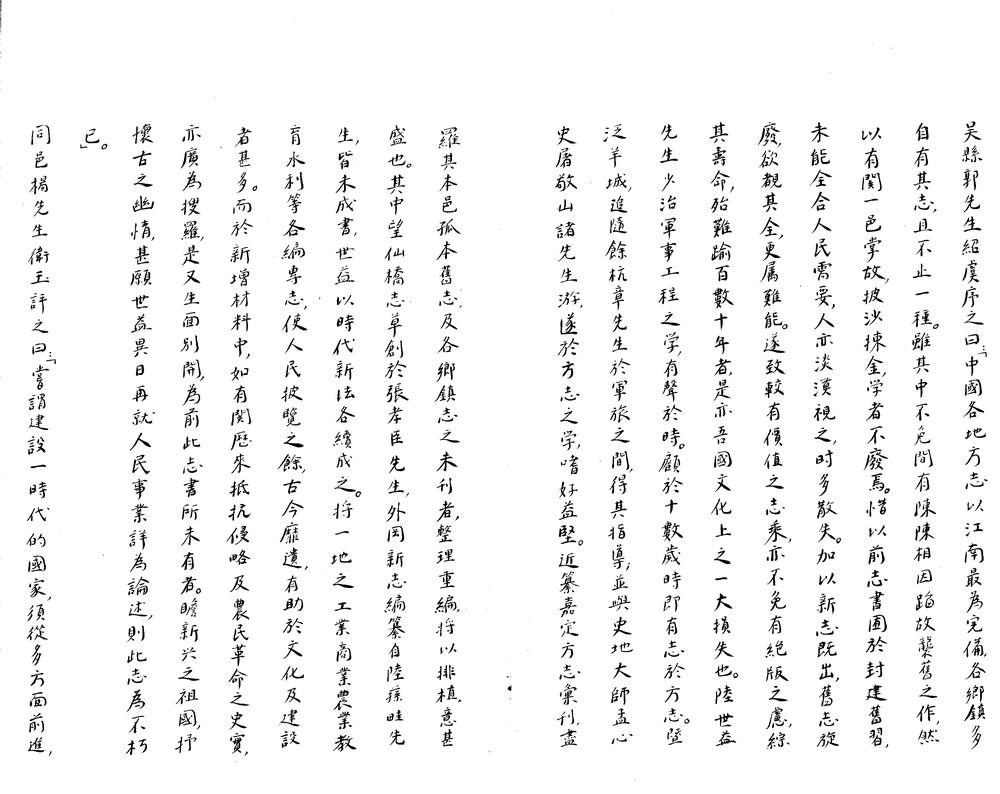 吳縣郭先生紹虞序之曰：「中國各地方志以江南最為完備，各鄉鎮多
自有其志，且不止一種。雖其中不免間有陳陳相因蹈故襲舊之作，然
以有関一邑掌故，披沙揀金，学者不廢焉。惜以前志書囿於封建舊習，
未能全合人民需要，人亦淡漠視之，时多散失。加以新志既出，舊志旋
廢，欲觀其全，更属難能。遂致較有價值之志乘，亦不免有絕版之慮，綜
其壽命，殆難踰百數十年者，是亦吾國文化上之一大損失也。陸世益
先生少治軍事工程之学，有聲於時。顧於十數歲時即有志於方志。暨
泛羊城，追隨餘杭章先生於軍旅之間，得其指導，並與史地大師孟心
史屠敬山諸先生游，遂於方志之学，嗜好益堅。近纂嘉定方志彙刊，盡
羅其本邑孤本舊志及各鄉鎮志之未刊者，整理重編，将以排楨，意甚
盛也。其中望仙橋志草創於張孝臣先生，外岡新志編纂自陸蓀畦先
生，皆未成書，世益以時代新法各續成之。将一地之工業商業農業教
育水利等各編專志，使人民披覽之餘，古今靡遺，有助於文化及建設
者甚多。而於新增材料中，如有関歷來抵抗侵略及農民革命之史實，
亦廣為搜羅，是又生面別開，為前此志書所未有者。瞻新兴之祖國，抒
懷古之幽情，甚願世益異日再就人民事業詳為論述，則此志為不朽
已」。
同邑楊先生衛玉評之曰：「嘗謂建設一時代的國家，須從多方面前進，